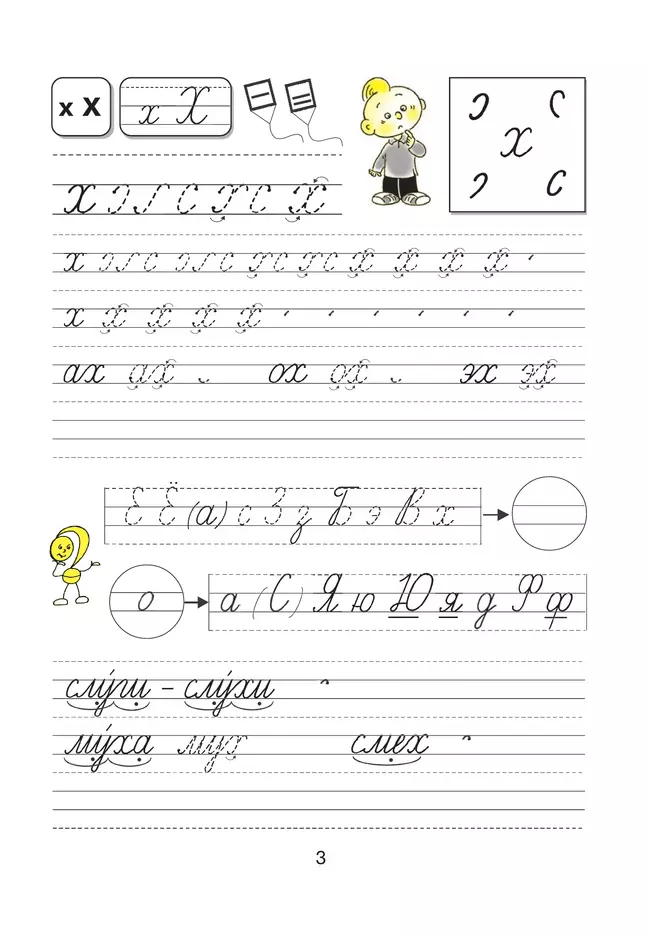 х Х х Х
х
х э с с х с х
х э с с э с с х с х с х х х х
х х х х х
ах ах ох ох эх эх
Е Ё (а) с З з Б э В х
о а (С) Я ю Ю я д Ф ф
слу́ги – слу́хи
му́ха мух смех
3